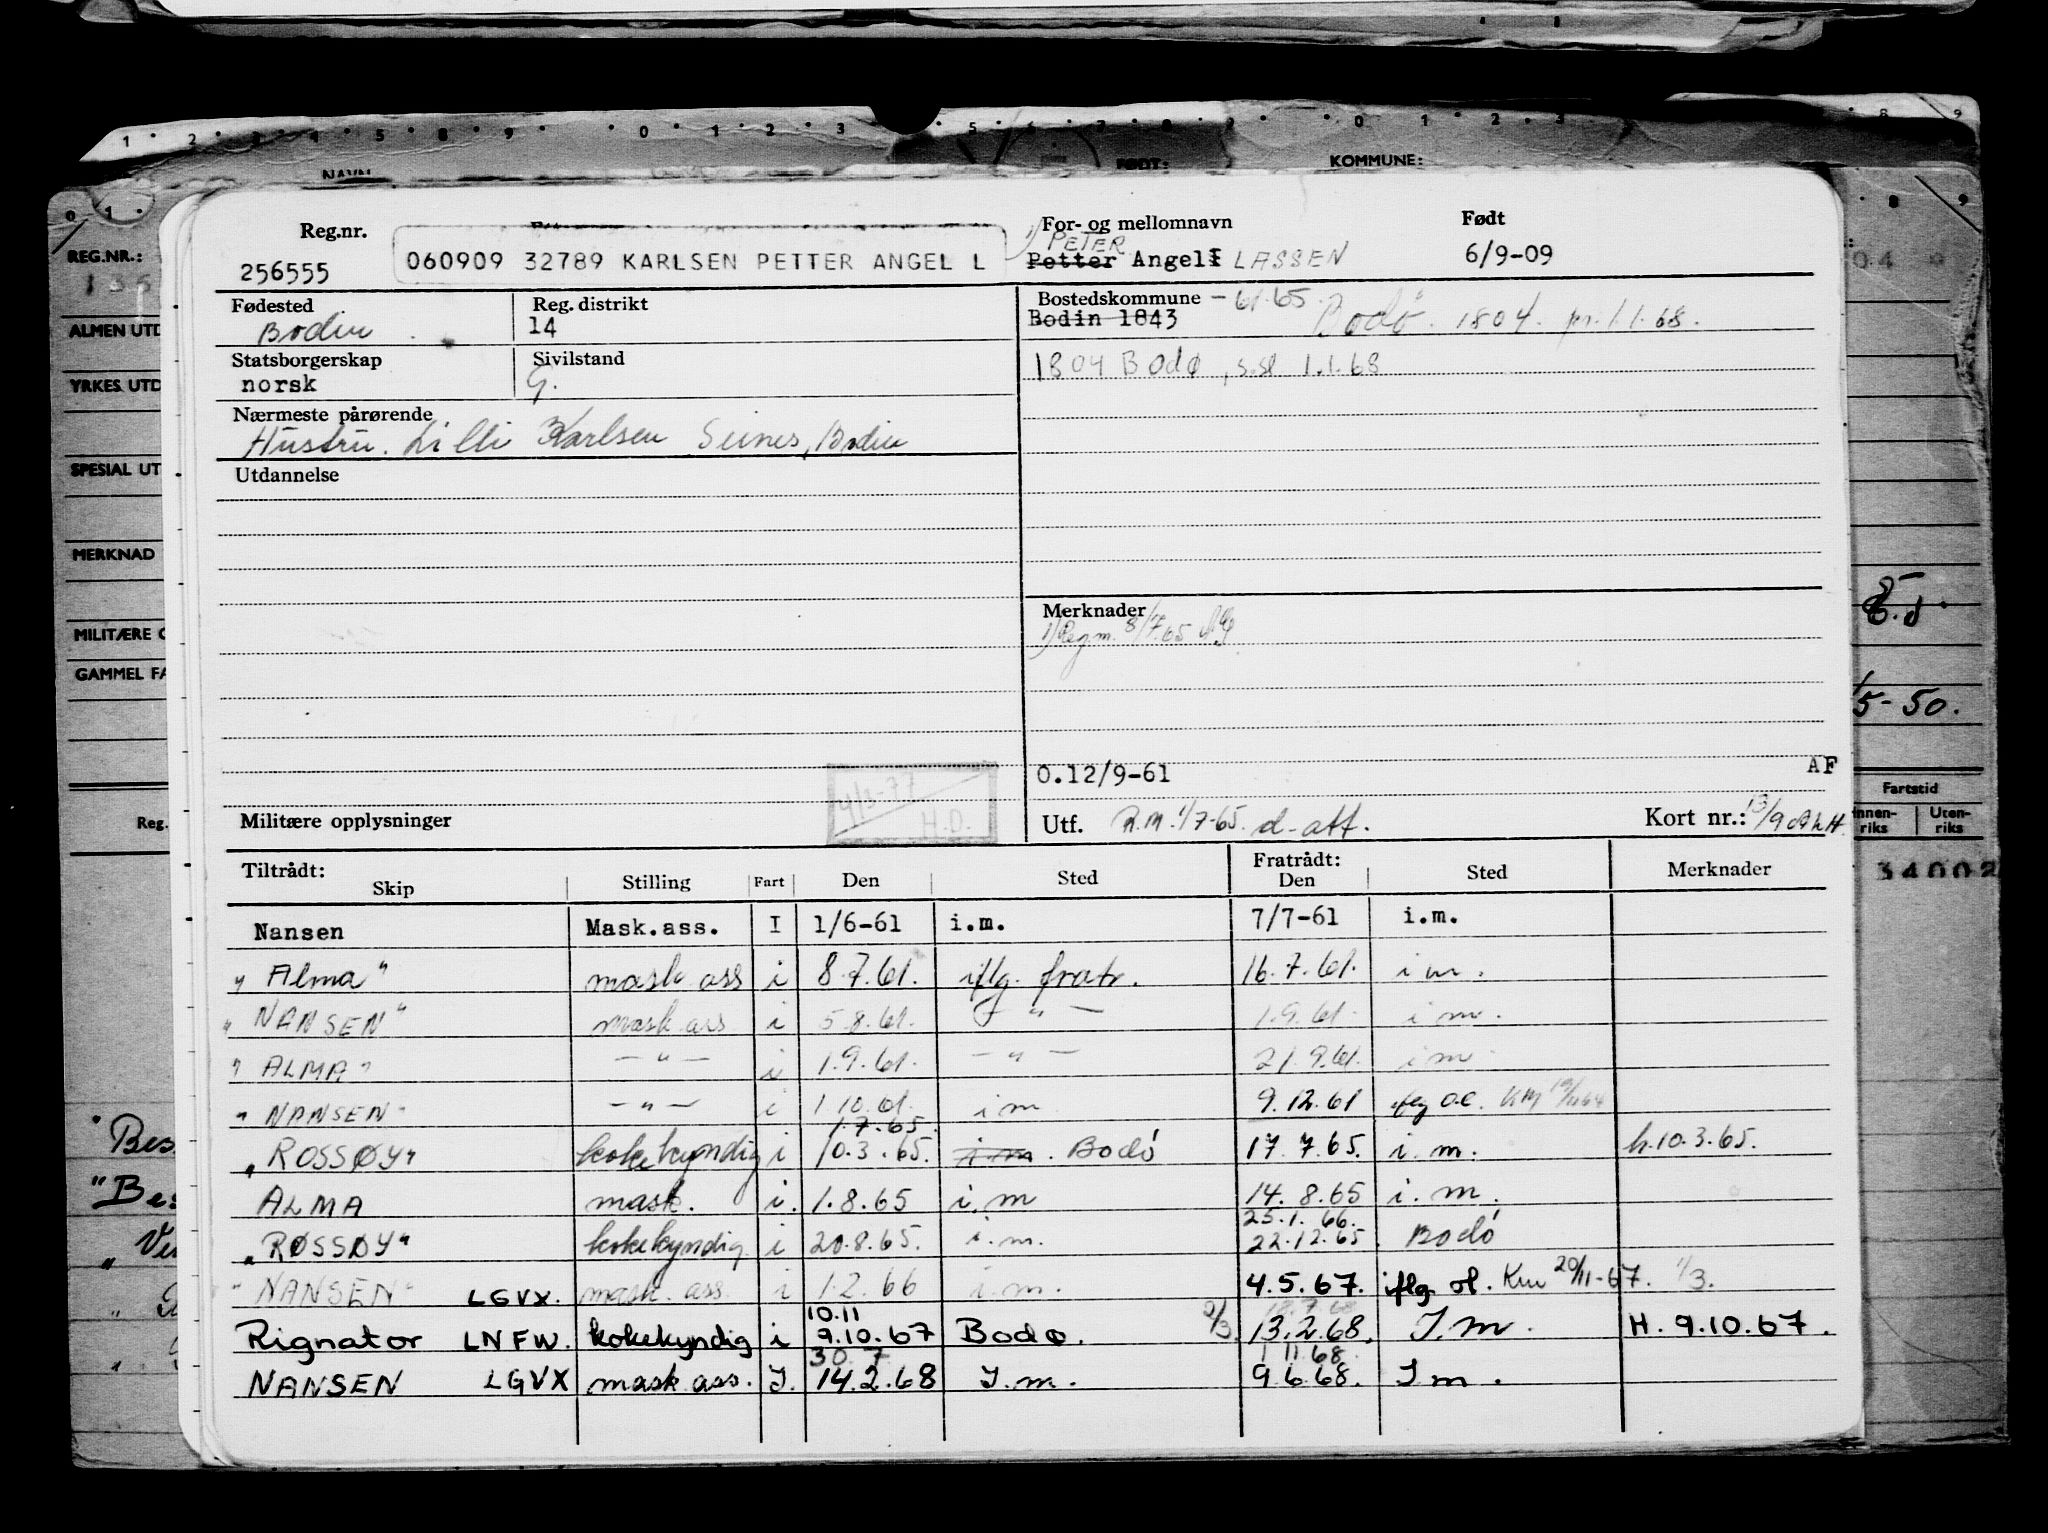 NAVN
FØDT:
KOMMUNE:
REG.NR.:
ALMEN UTD
YRKES UTD
SPESIAL UT
MERKNAD
MILITÆRE
GAMMEL FA
Reg.
Reg.nr.
For- og mellomnavn
Født
256555
060909 32789 KARLSEN PETTER ANGEL L
1) PETER
Petter Angell LASSEN
6/9-09
Fødested
Bodin
Reg. distrikt
14
Bostedskommune - 61.65.
Bodin 1843
Bodø. 1804. pr. 1.1.68.
Statsborgerskap
norsk
Sivilstand
G.
1804 Bodø, s.sl 1.1.68
Nærmeste pårørende
Hustru. Lilli Karlsen Seines, Bodin
Utdannelse
Merknader
1) Reg.m. 8/7.65
O.12/9-61
AF
4/3-77
H.D.
Militære opplysninger
Utf. R.M. 1/7-65. d-att.
Kort nr.:
Tiltrådt:
Skip
Stilling
Fart
Den
Sted
Fratrådt:
Den
Sted
Merknader
Nansen Mask.ass. I 1/6-61 i.m. 7/7-61 i.m.
" Alma " mask ass i 8.7.61. iflg. fratr. 16.7.61. i m.
" NANSEN " mask ass i 5.8.61. - " - 1.9.61. i m.
" ALMA " - " - i 1.9.61. - " - 21.9.61. i m
" NANSEN " - " - i 1.10.61. i m 9.12.61 iflg O.C.
1.7.65.
" ROSSØY " kokekyndig i 10.3.65. i.m. Bodø 17.7.65. i.m. h.10.3.65.
ALMA mask. i. 1.8.65 i.m 14.8.65 i.m.
25.1.66.
" RØSSØY " kokekyndig. i 20.8.65. i.m. 22.12.65. Bodø
" NANSEN " LGVX. mask. ass. i 1.2.66 i.m. 4.5.67. iflg. ol. Km 20/11-67. 1/3.
10.11 18.7.68
Rignator LNFW. kokekyndig i 9.10.67 Bodø. 2/3. 13.2.68. I.m. H. 9.10.67.
30.7 1.11.68
NANSEN LGVX mask ass. I. 14.2.68 I.m. 9.6.68. I m.
5-50.
Fartstid
Innen-
riks
Uten-
riks
34002
" Bes
" Bes